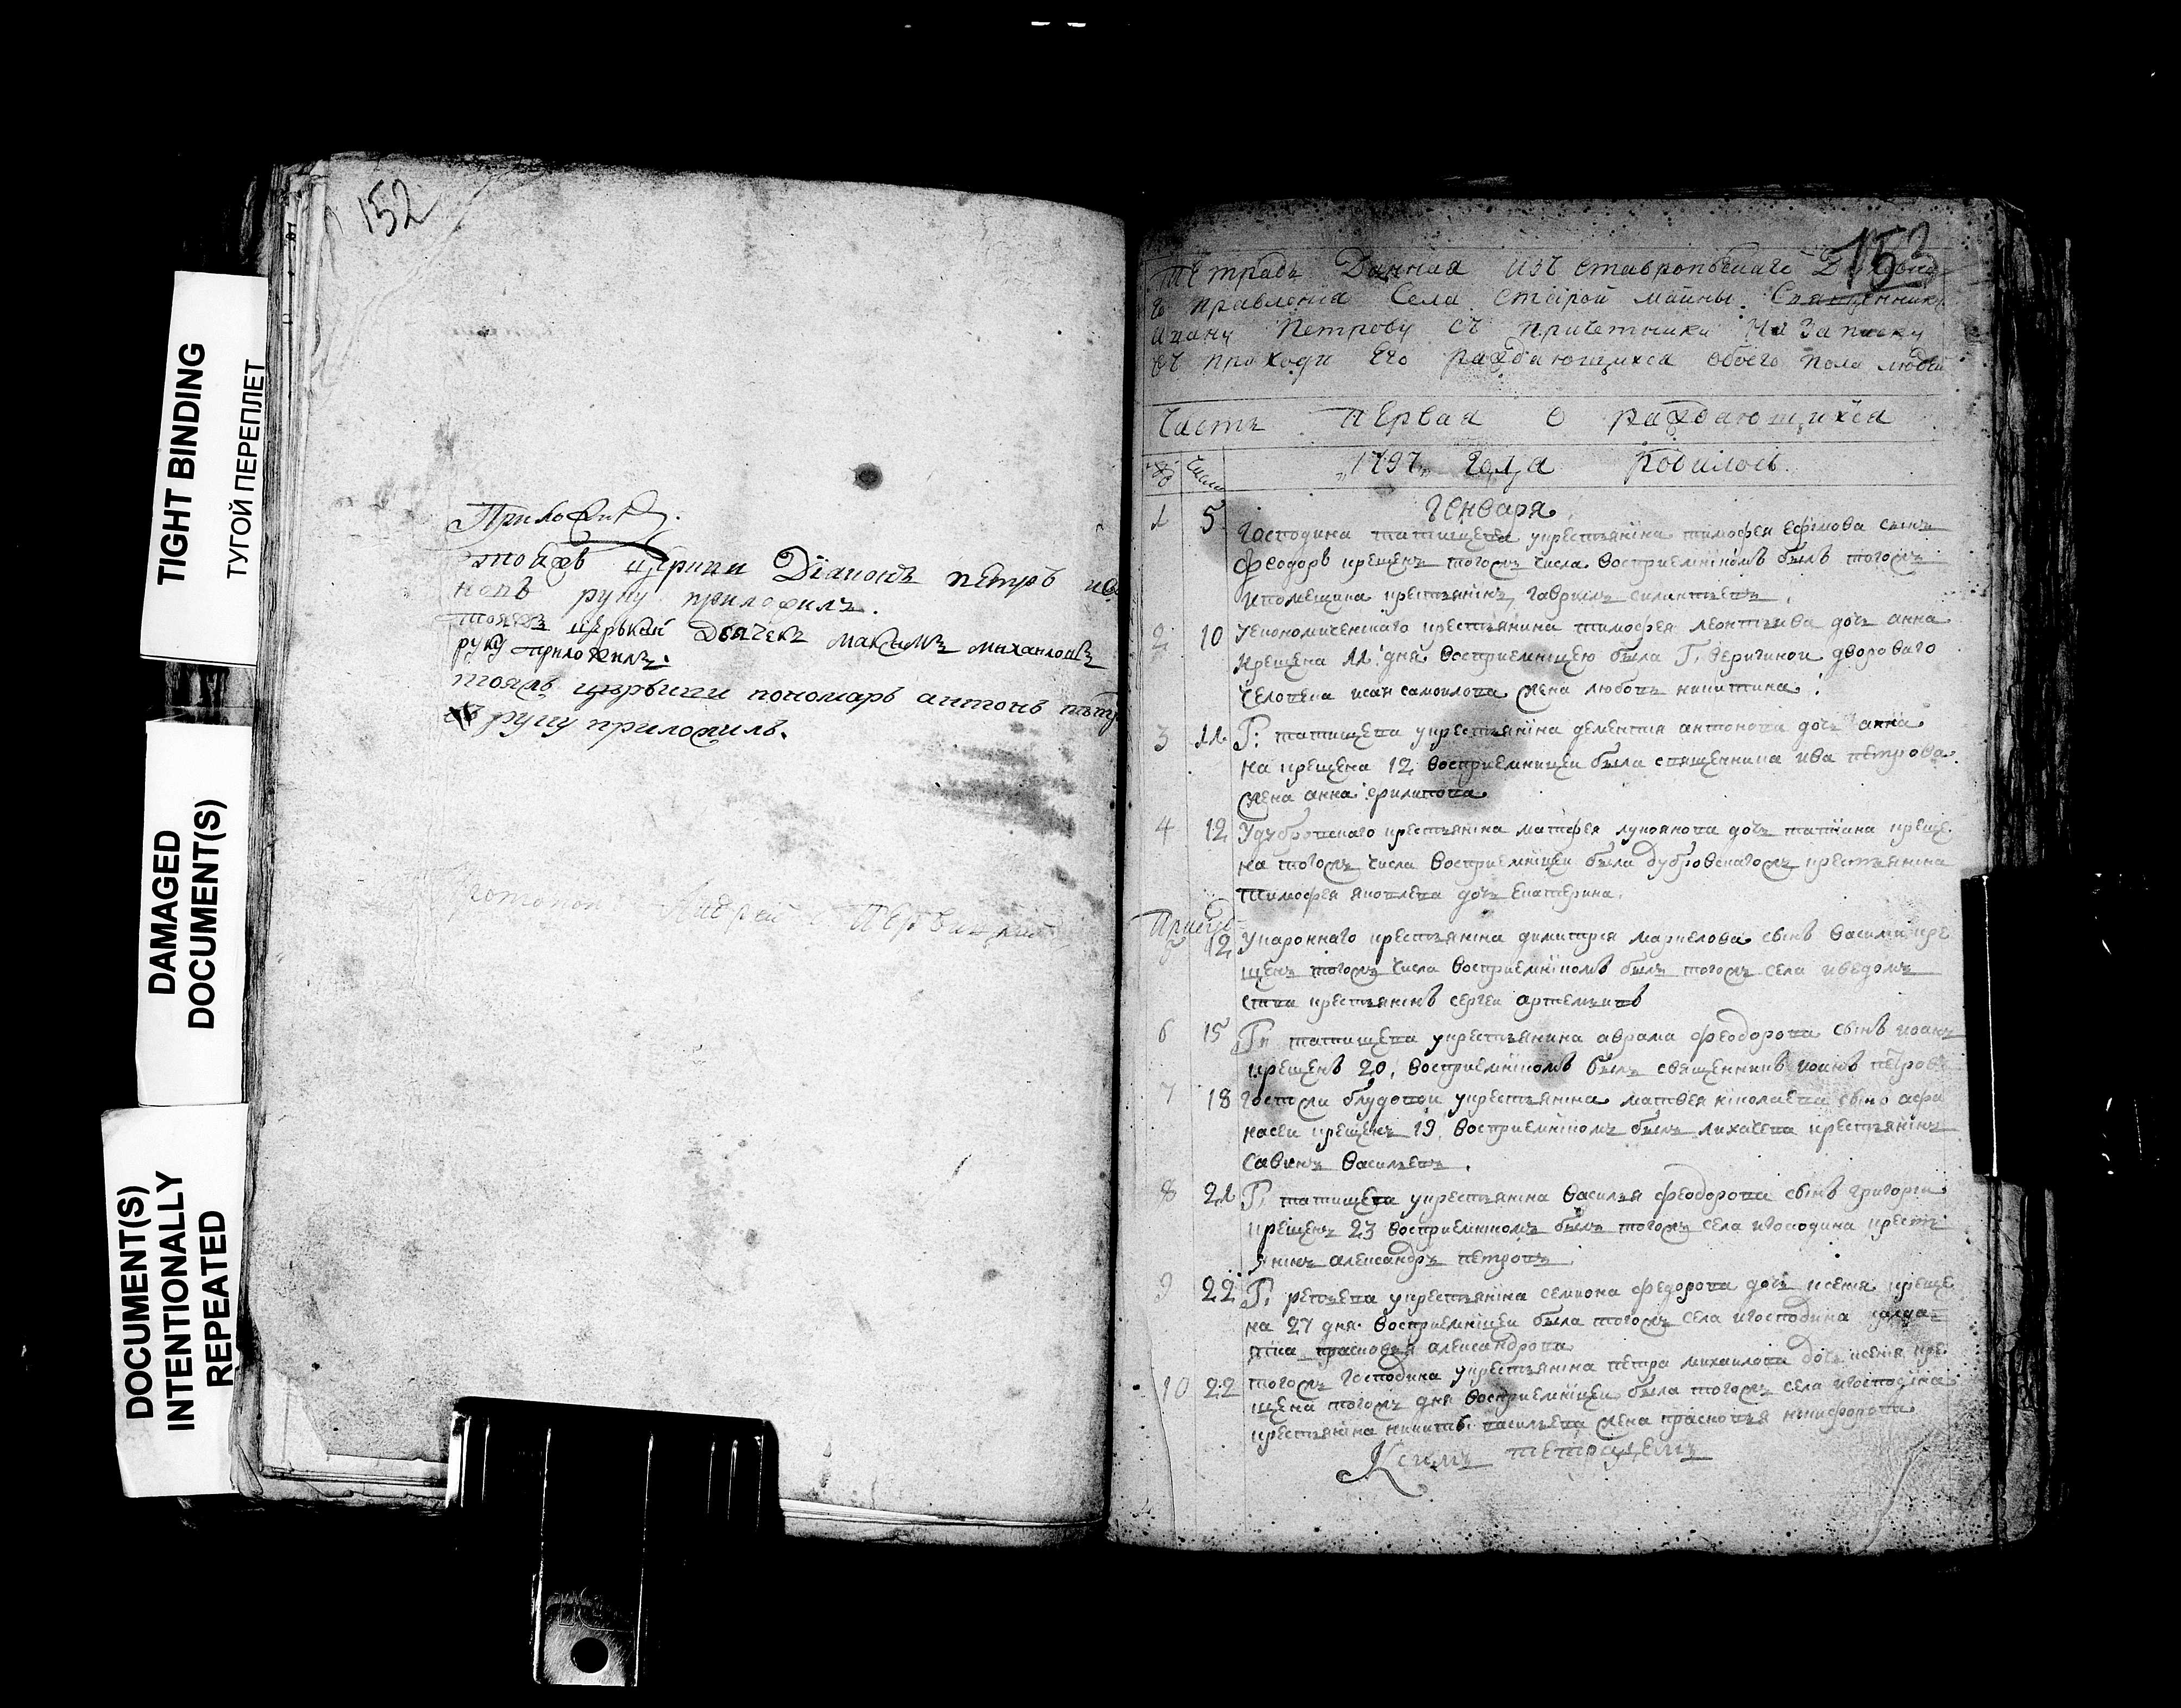 TIGHT BINDING
ТУГОЙ ПЕРЕПЛЕТ
DAMAGED
DOCUMENT(S)
DOCUMENT(S)
INTENTIONALLY
REPEATED
152
тояжъ церкви Діаконъ петръ
руку приложилъ.
тояжъ церькви Дьячекъ максимъ михаиловъ
руку приложилъ.
тояжъ церькви пономарь антонъ
руку приложилъ.
Протопопъ Андрей
153
Тетрадь Данная изъ ставропольскаго
правленія Села Старой майны Священнику
Иоану Петрову съ причетники На Записку
въ приходи Его раждающихся обоего пола людей
Часть первая о раждающихся
Число
1797 Года Родилось
Генваря
1 5 Господина татищева укрестьянина тимофея ефимова сынъ
феодоръ крещенъ тогожъ числа восприемникомъ былъ тогожъ
ипомещика крестьянинъ гаврилъ силантьевъ.
2 10 Уекономическаго крестьянина тимофея леонтьева дочь анна
крещена 11 дня восприемницею была Г. веригиной двороваго
человека исая самоилова жена любовь никитина.
3 11 Г: татищева укрестьянина дементия антонова дочь анна
на крещена 12 восприемницеи была священника ива петрова
жена анна филипова
4 12 Удубровскаго крестьянина матфея лукоянова дочь татиана креще
на тогожъ числа восприемницеи была дубровскагожъ крестьянина
тимофея яковлева дочь екатерина.
12 крестьянина димитрия сынъ васили кре
щенъ тогожъ числа восприемникомъ былъ тогожъ села иведомъ
ства крестьянинъ сергеи артемьевъ
6 15 Гн татищева укрестьянина аврама феодорова сынъ иоанъ
крещенъ 20, восприемникомъ былъ священникъ иоанъ петровъ
7 18 Госпожи блудовои укрестьянина матвея николаева сынъ афа
насеи крещенъ 19, восприемникомъ былъ лихачева крестьянинъ
савинъ васильевъ.
8 21 Г. татищева укрестьянина василья феодорова сынъ григории
крещенъ 23 восприемникомъ былъ тогожъ села игосподина кресть
янинъ александръ петровъ
9 22 Г. репьева укрестьянина семиона федорова дочь ксения креще
на 27 дня восприемницеи была тогожъ села игосподина
александрова
10 22 тогожъ господина укрестьянина петра михаилова дочь ксения кре
щена тогожъ дня восприемницеи была тогожъ села игосподина
крестьянина никиты васильева жена прасковья никифорова